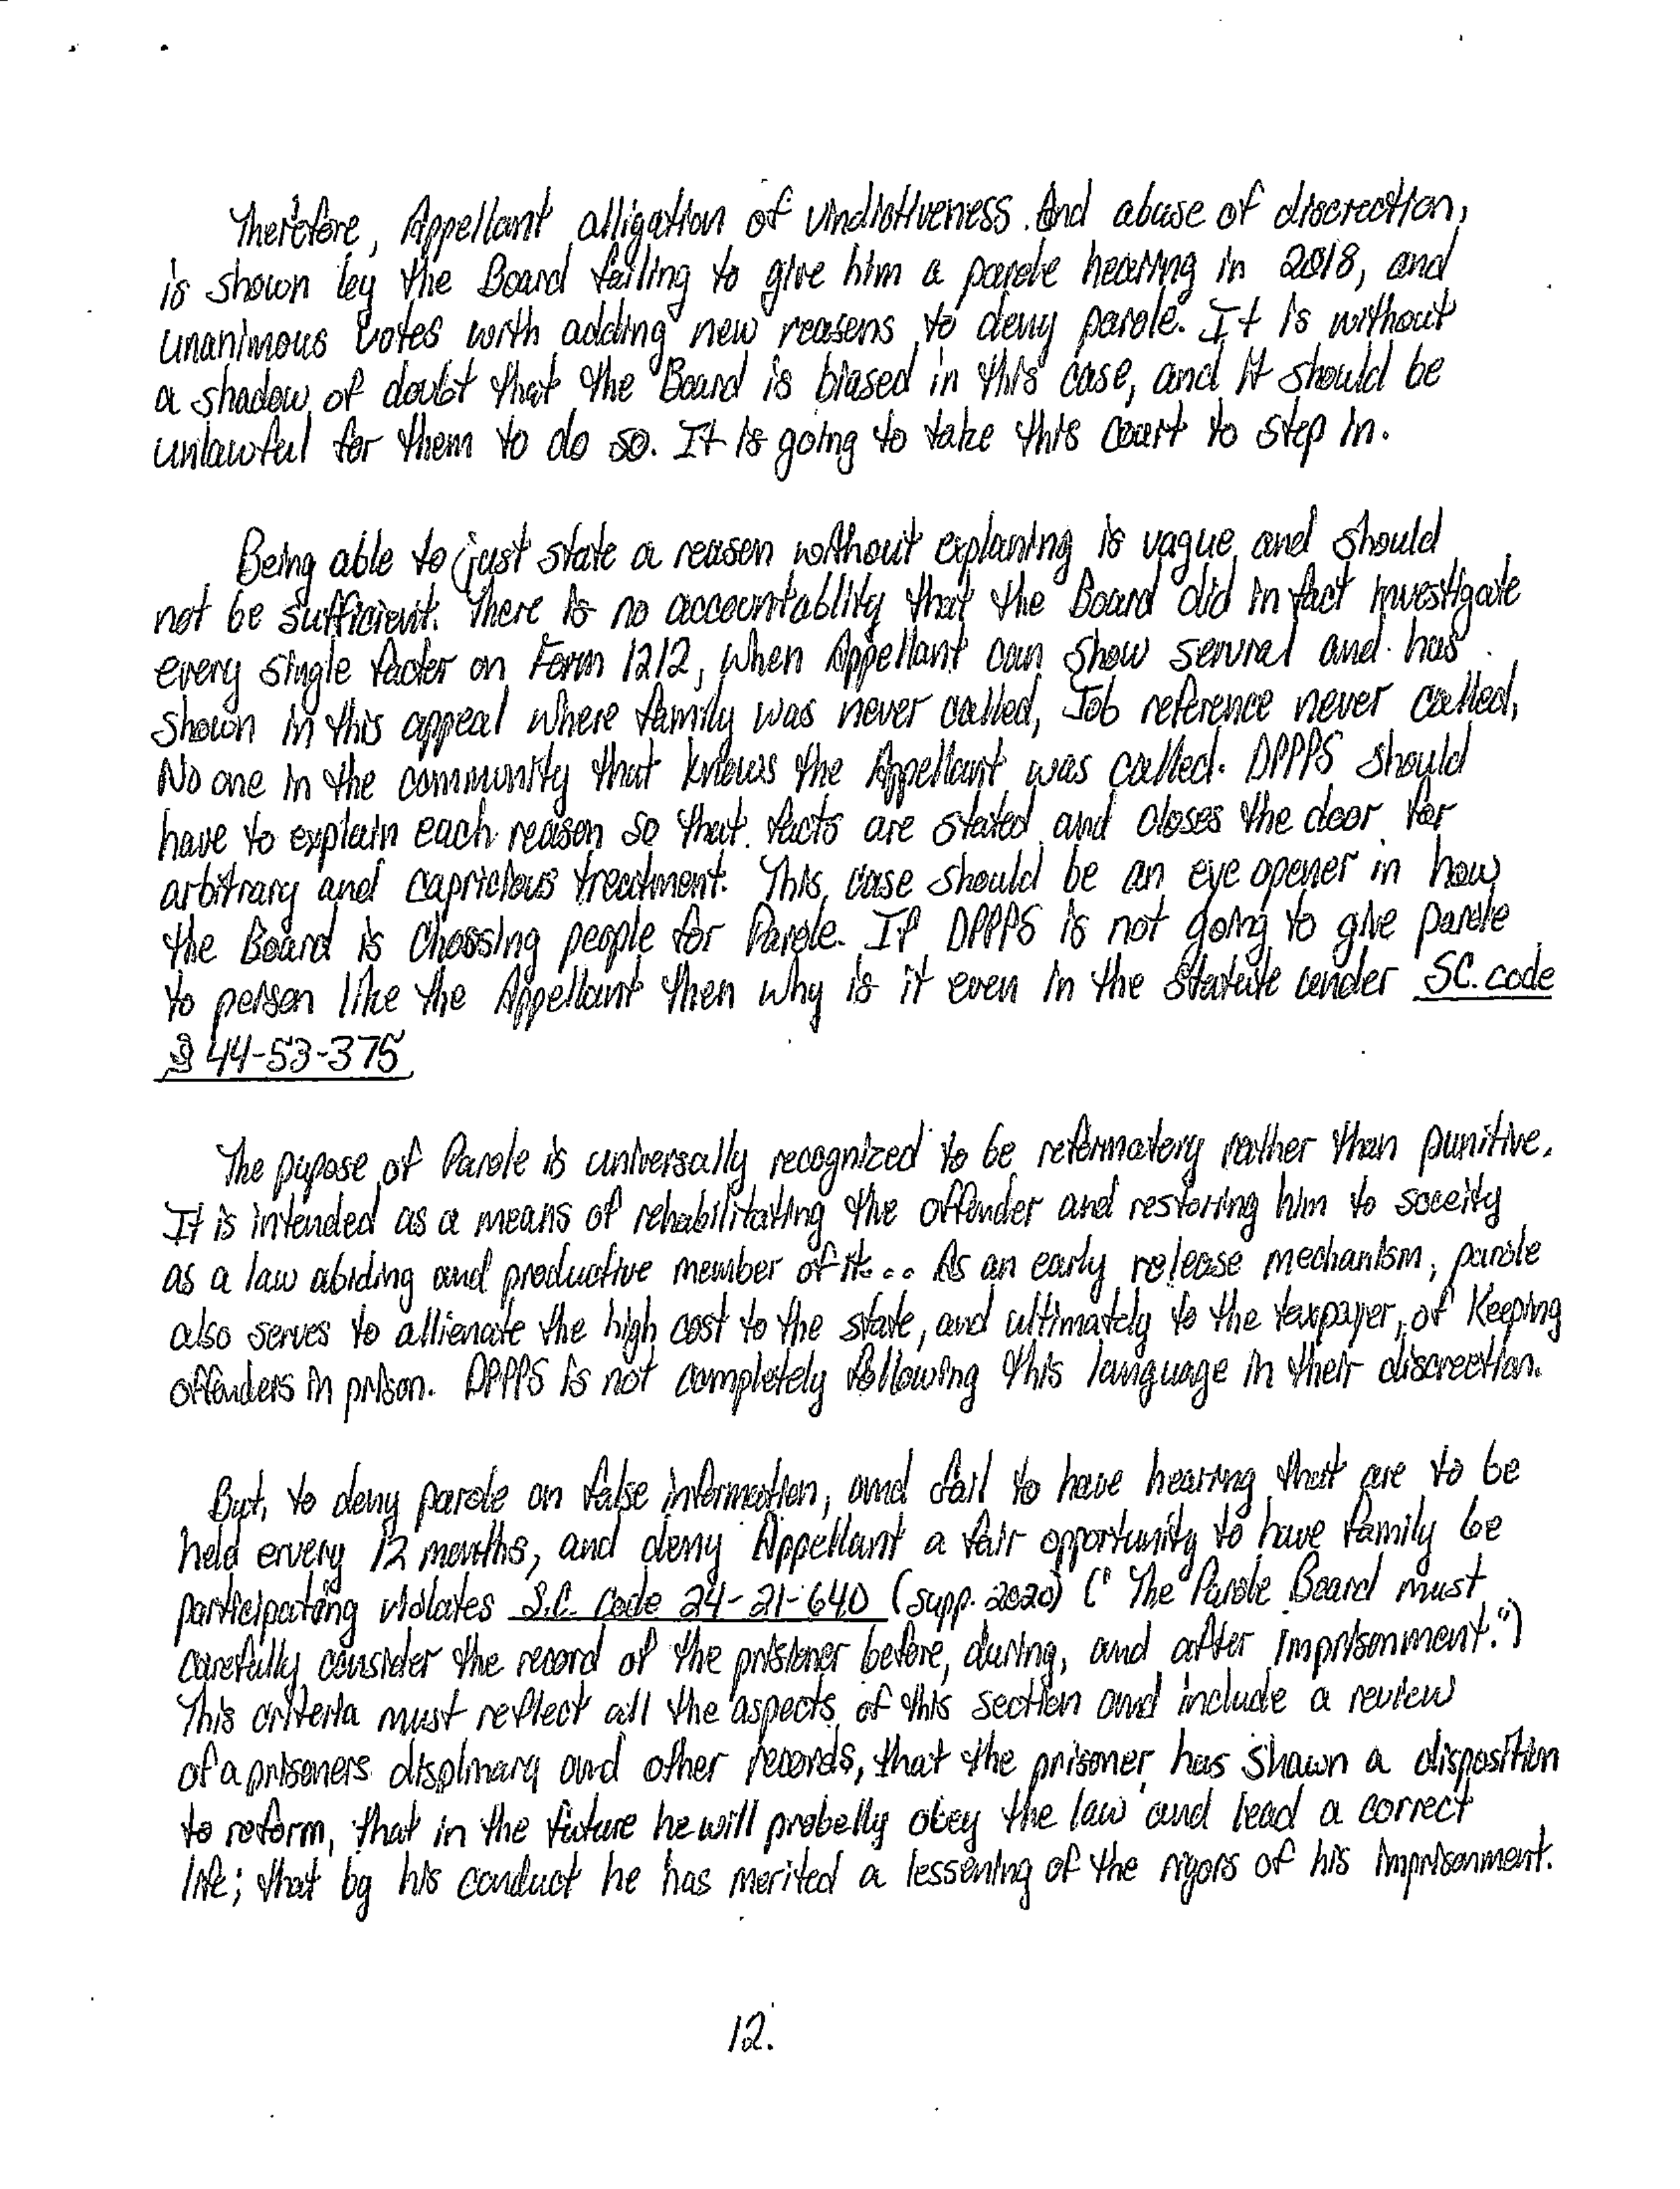 Therefore, Appellant alligation of vindictiveness. And abuse of discrection,
is shown by the Board failing to give him a parole hearing in 2018, and
unanimous votes with adding new reasons to deny parole. It is without
a shadow of doubt that the Board is biased in this case, and it should be
unlawful for them to do so. It is going to take this Court to step in.
Being able to just state a reason without explaning is vague and should
not be sufficient. There is no accountablity that the Board did in fact investigate
every single factor on Form 1212, when Appellant can show servral and has
shown in this appeal where family was never called, Job reference never called,
No one in the community that knows the Appellant was called. DPPPS should
have to explain each reason so that facts are stated and closes the door for
arbitrary and capricious treatment. This case should be an eye opener in how
the Board is choosing people for Parole. If DPPPS is not going to give parole
to person like the Appellant then why is it even in the Statute under SC. code
§ 44-53-375
The pupose of Parole is universally recognized to be reformatory rather than punitive.
It is intended as a means of rehabilitating the offender and restoring him to soceity
as a law abiding and productive member of it... As an early release mechanism, parole
also serves to allienate the high cost to the state, and ultimately to the taxpayer, of Keeping
offenders in prison. DPPPS is not completely following this language in their discreetion.
But, to deny parole on false information, and fail to have hearing that are to be
held ervery 12 months, and deny Appellant a fair opportunity to have family be
participating violates S.C. Code 24-21-640 (supp. 2020) (" The Parole Board must
carefully consider the record of the prisioner before, during, and after imprisonment.")
This criteria must reflect all the aspects of this section and include a review
of a prisoners displinary and other records, that the prisoner has shown a disposition
to reform, that in the future he will probelly obey the law and lead a correct
life; that by his conduct he has merited a lessening of the rigors of his imprisonment.
12.